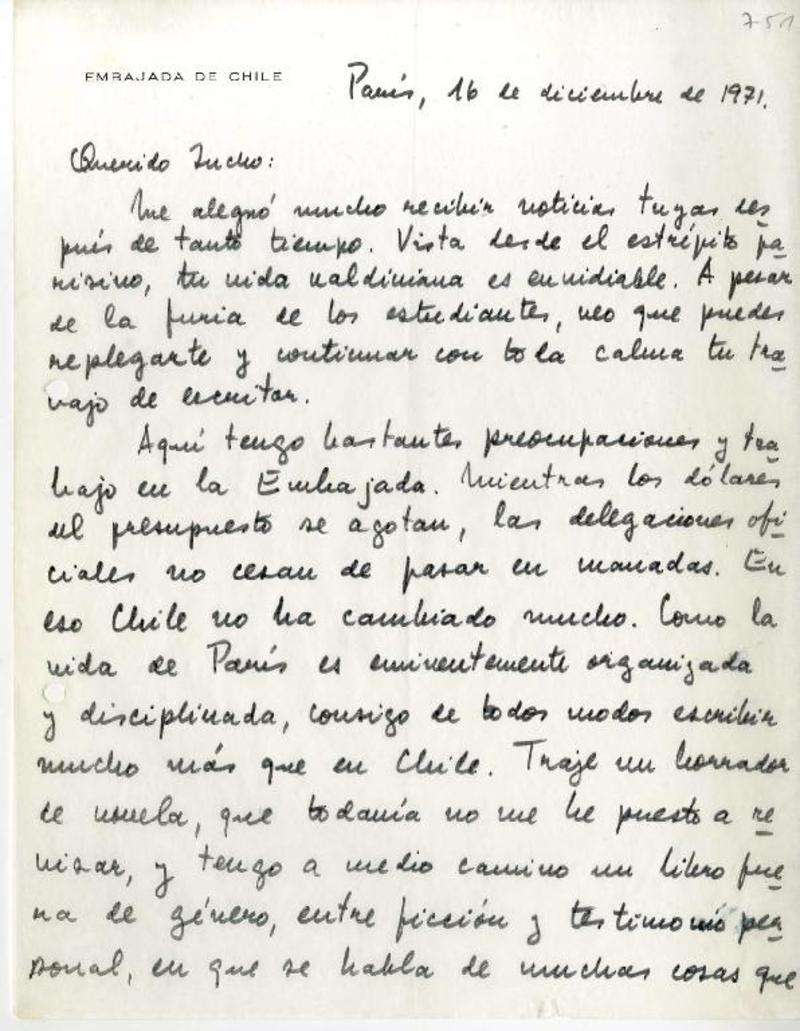 751
EMBAJADA DE CHILE
París, 16 de diciembre de 1971.
Querido Lucho:
Me alegró mucho recibir noticias tuyas des
pués de tanto tiempo. Vista desde el estrépito pa
risino, tu vida valdiviana es envidiable. A pesar
de la furia de los estudiantes, veo que puedes
replegarte y continuar con toda calma tu tra
vajo de escritor.
Aquí tengo bastantes preocupaciones y tra
bajo en la Embajada. Mientras los dólares
del presupuesto se agotan, las delegaciones ofi
ciales no cesan de pasar en manadas. En
eso Chile no ha cambiado mucho. Como la
vida de París es eminentemente organizada
y disciplinada, consigo de todos modos escribir
mucho más que en Chile. Traje un borrador
de novela, que todavía no me he puesto a re
visar, y tengo a medio camino un libro fue
ra de género, entre ficción y testimonio per
sonal, en que se habla de muchas cosas que